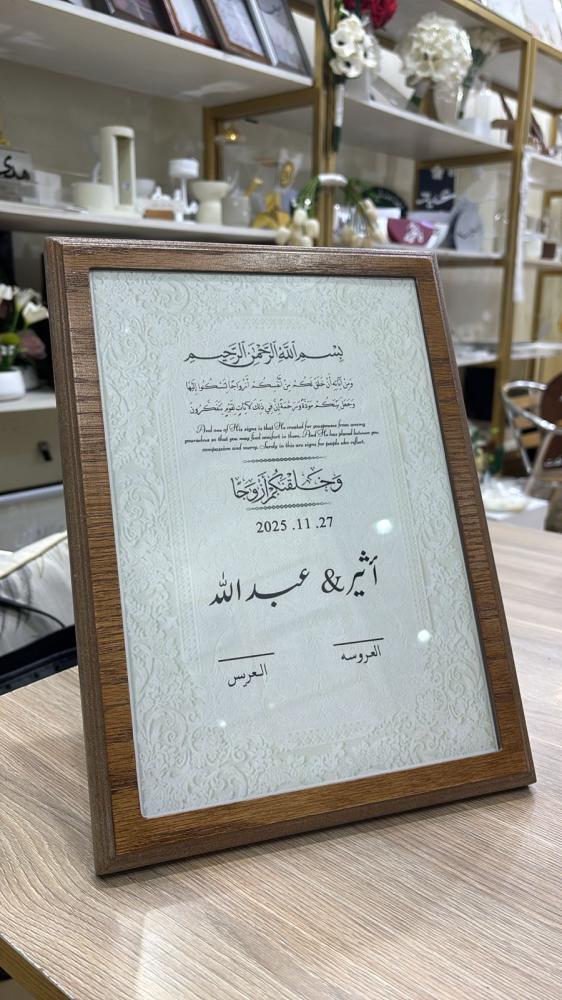 بِسْمِ اللَّهِ الرَّحْمَٰنِ الرَّحِيمِ
وَمِنْ آيَاتِهِ أَنْ خَلَقَ لَكُمْ مِنْ أَنْفُسِكُمْ أَزْوَاجًا لِتَسْكُنُوا إِلَيْهَا
وَجَعَلَ بَيْنَكُمْ مَوَدَّةً وَرَحْمَةً إِنَّ فِي ذَلِكَ لَآيَاتٍ لِقَوْمٍ يَتَفَكَّرُونَ
And one of His signs is that He created for you spouses from among
yourselves so that you may find comfort in them. And He has placed between you
compassion and mercy. Surely in this are signs for people who reflect.
وَخَلَقْنَاكُمْ أَزْوَاجًا
2025 .11 .27
أثير & عبدالله
العروسه
العريس
هدى